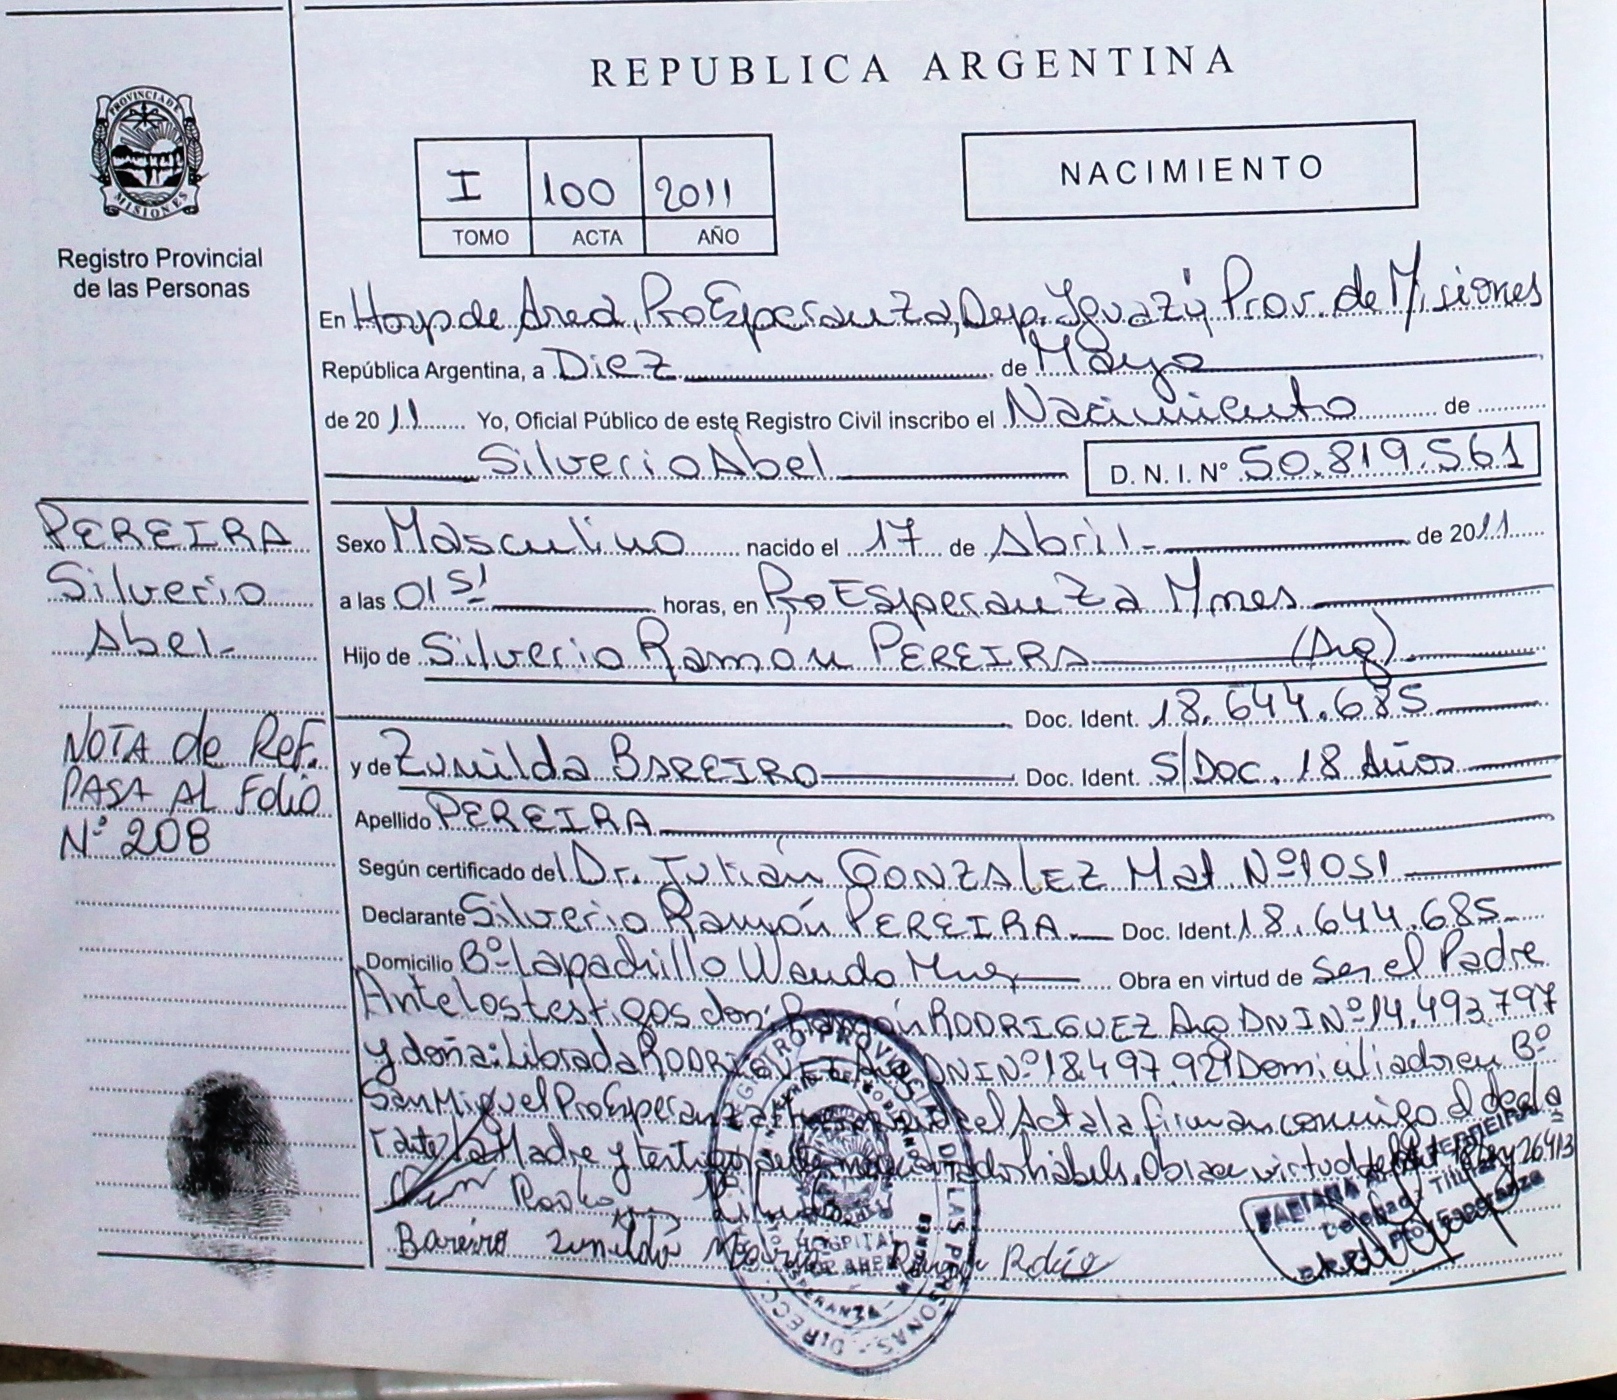 REPUBLICA ARGENTINA
PROVINCIA DE
MISIONES
Registro Provincial
de las Personas
I 100 2011
TOMO ACTA AÑO
NACIMIENTO
En Hosp de Área, Pto Esperanza, Dep. Iguazú, Prov. de Misiones
República Argentina, a Diez de Mayo
de 2011 Yo, Oficial Público de este Registro Civil inscribo el Nacimiento de
Silverio Abel D. N. I. Nº 50.819.561
PEREIRA
Silverio
Abel-
NOTA de Ref.
PASA AL Folio
Nº 208
Sexo Masculino nacido el 17 de Abril- de 2011
a las 01 51 horas, en Pto Esperanza Mnes
Hijo de Silverio Ramón PEREIRA (Arg)
Doc. Ident. 18.644.685
y de Zunilda BAREIRO Doc. Ident. S/Doc. 18 Años
Apellido PEREIRA
Según certificado del Dr. Julián GONZALEZ Mat Nº 1051
Declarante Silverio Ramón PEREIRA Doc. Ident 18.644.685
Domicilio Bº Lapachillo Wanda Obra en virtud de Ser el Padre
Ante los testigos don: Ramón RODRIGUEZ Arg DNI Nº 14.493.797
y doña: Librada RODRIGUEZ Arg DNI Nº Domiciliados en Bº
San Miguel Pto Esperanza el Acta la firman conmigo el decla
rante la Madre y testigos Obra en virtud Ley 26.413
Bareiro Zunilda
HOSPITAL
ESPERANZA